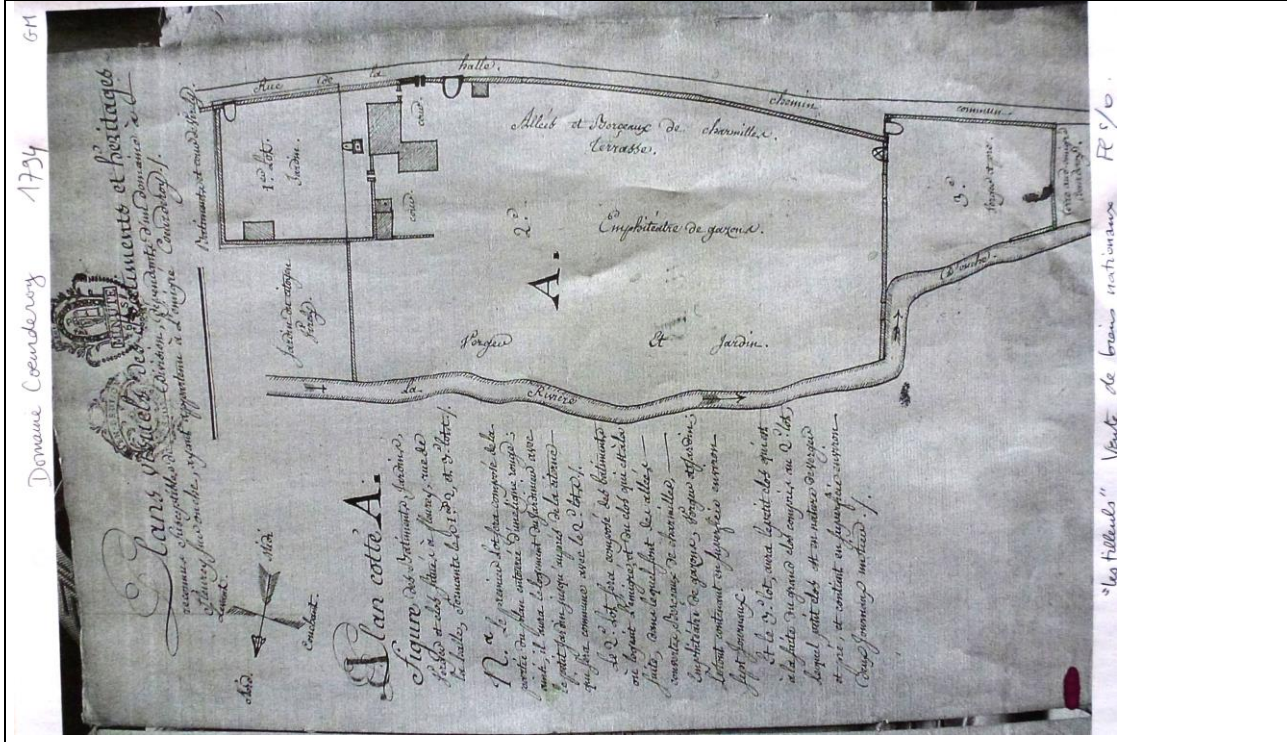 GM
Domaine Coeurderoy 1794
Plans visuels des Batiments et héritages
reconnus susceptibles de division, dépendants d'un domaine à
fleurey sur ouche, ayant appartenu à L'émigré Coeurderoy /.
MINUTE
Levant.
Midi.
Nord.
Couchant.
Plan cotté A.
Figure des Batiments, Jardins,
Verger et clos situés à fleurey, rue de
la halle, formants les 1.er 2.e et 3.e lots /.
N.a Le premier lot sera composé de la
partie du plan entourée d'une ligne rouge;
ainsi, il aura le logement du Jardinier avec
le petit jardin jusqu'auprès de la citerne
qui sera commune avec le 2.e lot /.
Le 2.e lot sera composé des batiments
où logeait l'émigré et du clos qui est à la
suite, dans lequel sont des allées
couvertes, Berceaux de charmilles,
Emphitéatre de gazons, Verger et Jardin;
Le tout contenant en superficie environ
sept journaux /.
Et le 3.e lot, aura le petit clos qui est
à la suite du grand clos compris au 2.e lot,
lequel petit clos est en nature de verger
et pré, et contient en superficie environ
Deux Journaux
Batiments et cour de
Rue de la halle.
chemin commun.
1.er Lot.
Jardin.
cour
cour
Jardin du citoyen
Allées et Berceaux de charmilles
terrasse.
2.e
Emphitéatre de gazons.
A.
Verger Et Jardin.
La Rivière D'ouche.
3.e
Verger et pré.
"Les tilleuls" Vente de biens nationaux